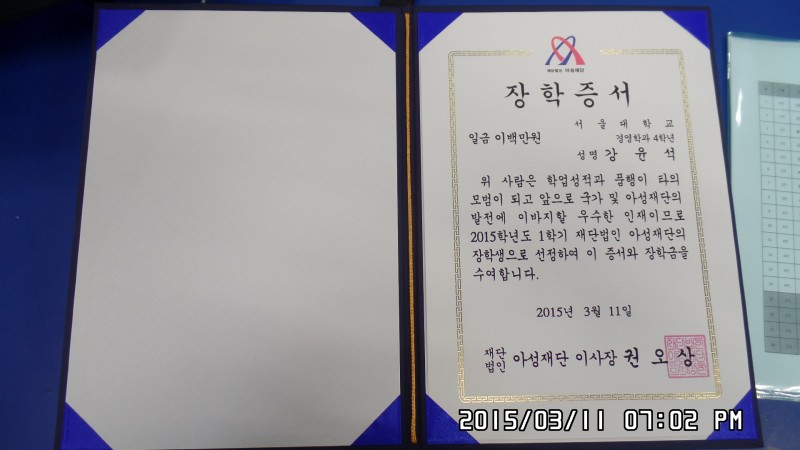 재단법인 아성재단
장학증서
서울대학교
일금 이백만원
경영학과 4학년
성명 강윤석
위 사람은 학업성적과 품행이 타의
모범이 되고 앞으로 국가 및 아성재단의
발전에 이바지할 우수한 인재이므로
2015학년도 1학기 재단법인 아성재단의
장학생으로 선정하여 이 증서와 장학금을
수여합니다.
2015년 3월 11일
재단
법인 아성재단 이사장 권오상
2015/03/11 07:02 PM